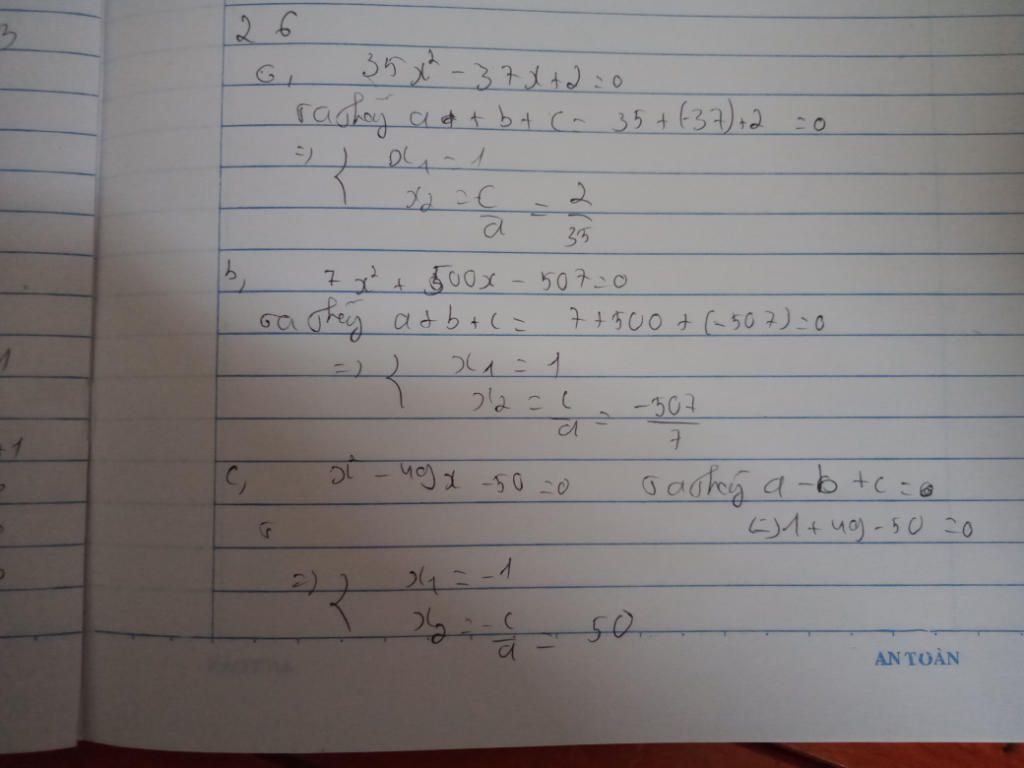 3
26
a, 35x² - 37x + 2 = 0
Ta thấy a + b + c = 35 + (-37) + 2 = 0
=> { x₁ = 1
x₂ = c/a = 2/35
b, 7x² + 500x - 507 = 0
Ta thấy a + b + c = 7 + 500 + (-507) = 0
=> { x₁ = 1
x₂ = c/a = -507/7
1
+1
c, x² - 49x - 50 = 0 Ta thấy a - b + c = 0
(=) 1 + 49 - 50 = 0
=> { x₁ = -1
x₂ = -c/a = 50
AN TOÀN